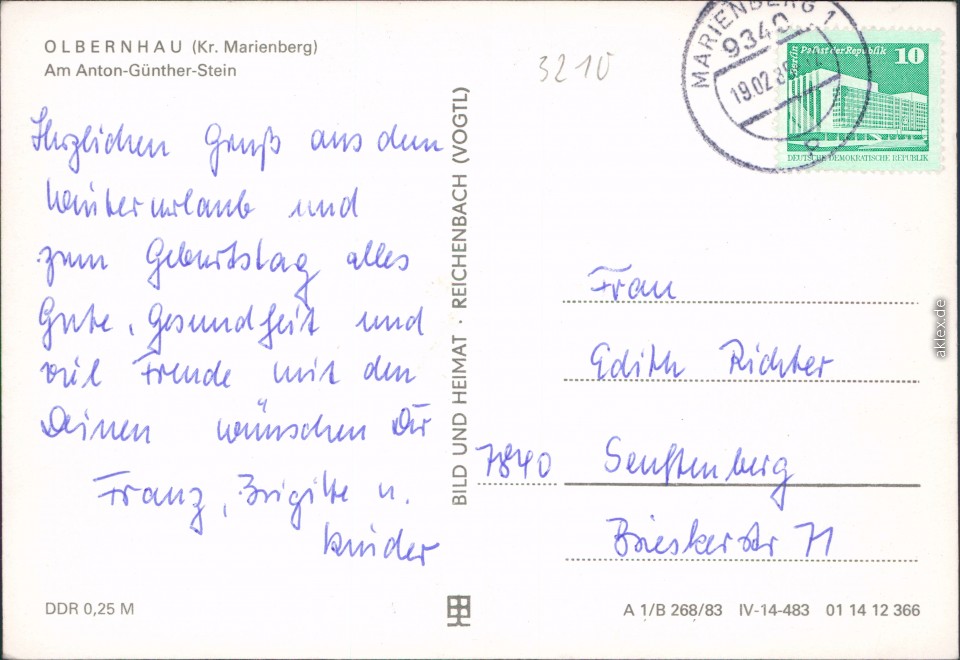 OLBERNHAU (Kr. Marienberg)
Am Anton-Günther-Stein
Herzlichen Gruß aus dem
Winterurlaub und
zum Geburtstag alles
Gute, Gesundheit und
viel Freude mit den
Deinen wünschen Dir
Franz, Brigitte u.
Kinder
DDR 0,25 M
BILD UND HEIMAT · REICHENBACH (VOGTL)
3210
MARIENBERG 1
9340
19.02.8
Berlin Palast der Republik 10
DEUTSCHE DEMOKRATISCHE REPUBLIK
Frau
Edith Richter
7840 Senftenberg
Brieskerstr 71
A 1/B 268/83 IV-14-483 01 14 12 366
aklex.de